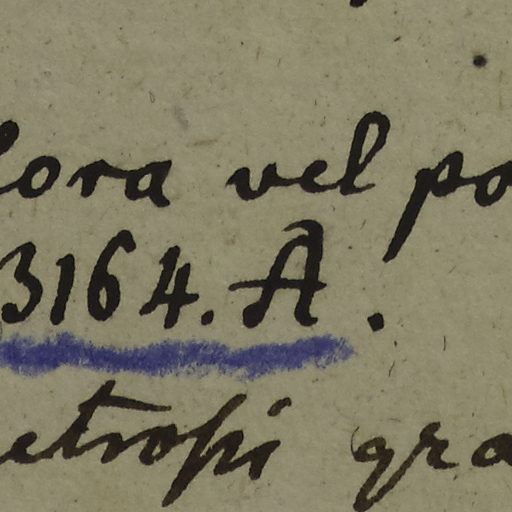 lora vel po
3164. A.
etrosi gra